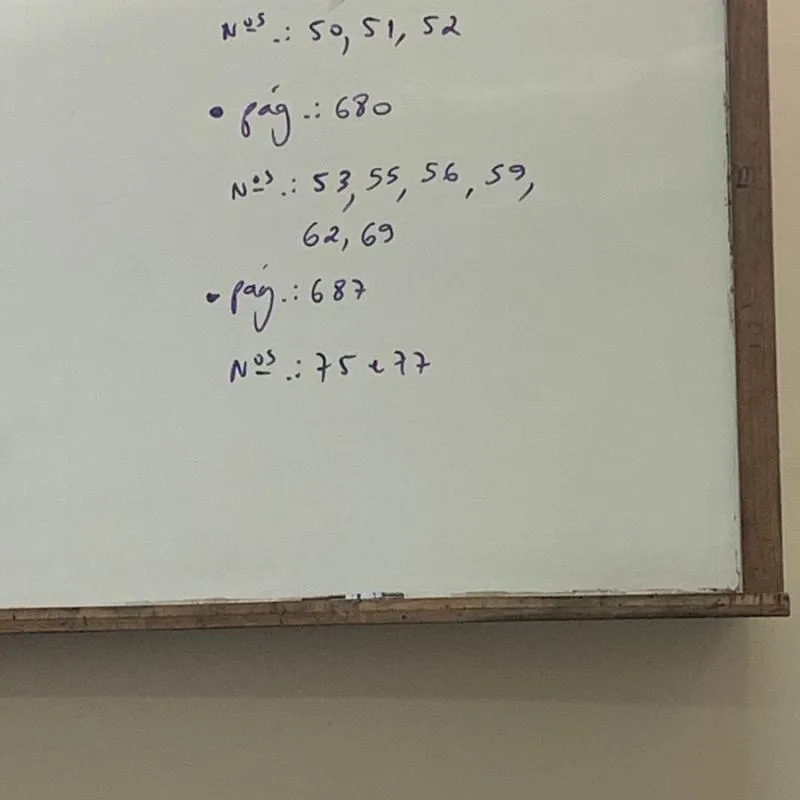 Nºs.: 50, 51, 52
• pág.: 680
Nºs.: 53, 55, 56, 59,
62, 69
• pág.: 687
Nºs.: 75 e 77